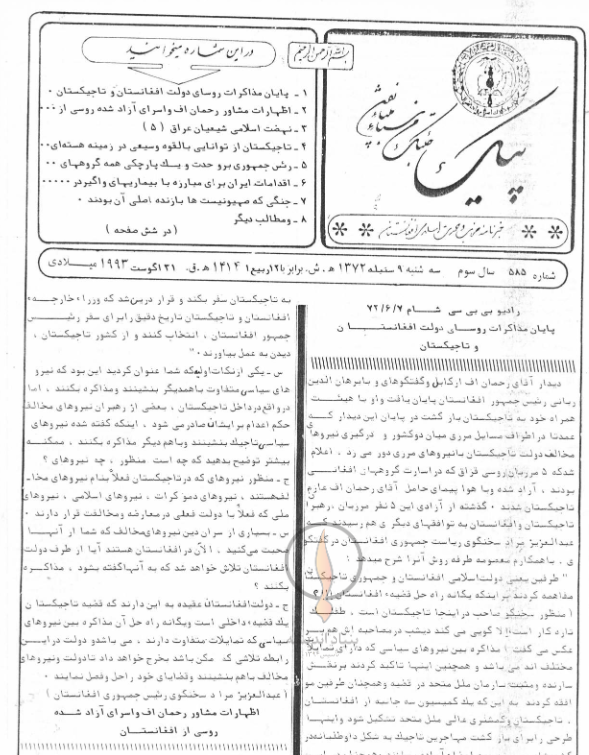 بسم الله الرحمن الرحیم
در این شماره میخوانید
۱ - پایان مذاکرات روسای دولت افغانستان و تاجیکستان ۰
۲ - اظهارات مشاور رحمان اف واسرای آزاد شده روسی از ۰۰۰
۳ - نهضت اسلامی شیعیان عراق ( ۵ )
۴ - تاجیکستان از توانایی بالقوه وسیعی در زمینه هسته‌ای ۰۰
۵ - رئس جمهوری برو حدت و یك پارچکی همه گروههای ۰۰
۶ - اقدامات ایران برای مبارزه با بیماریهای واگیردر ۰۰۰۰۰
۷ - جنگی که صهیونیست ها بازنده اصلی آن بودند ۰
۸ - ومطالب دیگر
( در شش صفحه )
شماره ۵۸۵ سال سوم سه شنبه ۹ سنبله ۱۳۷۲ ه . ش . برابر با ۱۲ ربیع ۱ ۱۴۱۴ ه . ق . ۳۱ اگوست ۱۹۹۳ میلادی
رادیو بی بی سی شام ۷۲/۶/۷
پایان مذاکرات روسای دولت افغانستان
و تاجیکستان
دیدار آقای رحمان اف ازکابل وگفتگوهای و بابرهان الدین
ربانی رئیس جمهور افغانستان پایان یافت واو با هیئت
همراه خود به تاجیکستان باز گشت در پایان این دیدار که
عمدتا در اطراف مسایل مرزی میان دوکشور و درگیری نیروهای
مخالف دولت تاجیکستان بانیروهای مرزی دور می زد ، اعلام
شدکه ۵ مرزبان روسی قزاق که در اسارت گروههای افغانی
بودند ، آزاد شده وبا هوا پیمای حامل آقای رحمان اف عازم
تاجیکستان شدند ۰ گذشته از آزادی این ۵ نفر مرزبان ، رهبران
تاجیکستان وافغانستان به توافقهای دیگری هم رسیدند که
عبدالعزیز مراد سخنگوی ریاست جمهوری افغانستان درگفتگو
ی ، باهمکارم معصومه طرفه روش آنرا شرح میدهد :
" طرفین یعنی دولت اسلامی افغانستان و جمهوری تاجیکستان
مفاهمه کردند براینکه یگانه راه حل قضیه
( منظور سخنگو صاحب دراینجا تاجیکستان است ،
تازه کار است لا گویی می کند دیشب درمصاحبه اش هم بر
عکس می گفت ) مذاکره بین نیروهای سیاسی که دارای تمایلات
مختلف اند می باشد و همچنین اینها تاکید کردند برنقش
سازنده ومثبت سازمان ملل متحد در قضیه وهمچنان طرفین مو
افقه کردند به این که یك کمیسیون سه جانبه از افغانستان
، تاجیکستان وکمشنری عالی ملل متحد تشکیل شود واینها
طرحی را برای باز گشت مهاجرین تاجیك به شکل داوطلبانه در
به تاجیکستان سفر بکند و قرار درین شد که وزراء خارجه
افغانستان و تاجیکستان تاریخ دقیق را برای سفر رئیس
جمهور افغانستان ، انتخاب کنند و از کشور تاجیکستان ،
دیدن به عمل بیاورند ۰ "
س - یکی ازنکات اولیه که شما عنوان کردید این بود که نیرو
های سیاسی متفاوت باهمدیگر بنشینند ومذاکره بکنند ، اما
درواقع در داخل تاجیکستان ، بعضی از رهبران نیروهای مخالف
حکم اعدام برایشان صادر می شود ، اینکه گفته شده نیروهای
سیاسی تاجیك بنشینند وباهم دیگر مذاکره بکنند ، ممکنه
بیشتر توضیح بدهید که چه است منظور ، چه نیروهای ؟
ج - منظور نیروهای که درتاجیکستان فعلاً بنام نیروهای مخا-
لف هستند ، نیروهای دمو کرات ، نیروهای اسلامی ، نیروهای
ملی که فعلاً با دولت فعلی در معارضه ومخالفت قرار دارند ۰
س - بسیاری از سران دین نیروهای مخالف که شما از آنها
صحبت می‌کنید ، الآن در افغانستان هستند آیا از طرف دولت
افغانستان تلاش خواهد شد که به آنها گفته بشود ، مذاکره
بکنند ؟
ج - دولت افغانستان عقیده به این دارند که قضیه تاجیکستان
یك قضیه داخلی است ویگانه راه حل آن مذاکره بین نیروهای
سیاسی که تمایلات متفاوت دارند ، می باشدو دولت دراین
رابطه تلاشی که ممکن باشد بخرج خواهد داد تادولت ونیروهای
مخالف باهم بنشینند وقضایای خود را حل وفصل نمایند ۰
( عبدالعزیز مراد سخنگوی رئیس جمهوری افغانستان )
اظهارات مشاور رحمان اف واسرای آزاد شده
روسی از افغانستان